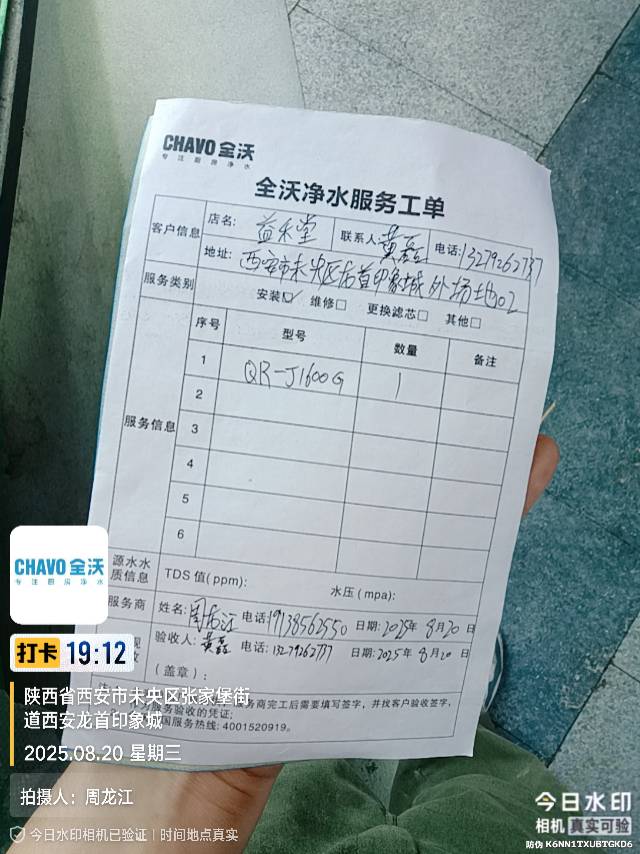 CHAVO 全沃
专注厨房净水
全沃净水服务工单
客户信息
店名: 益禾堂
联系人: 黄磊
电话: 13279262737
地址: 西安市未央区龙首印象城外场地02
服务类别
安装☑ 维修□ 更换滤芯□ 其他□
服务信息
序号 型号 数量 备注
1 QR-J1600G 1
2
3
4
5
6
源水水质信息
TDS 值(ppm): 水压(mpa):
服务商
姓名: 周龙江 电话: 19138562550 日期: 2025年8月20日
验收人: 黄磊 电话: 13279262737 日期: 2025年8月20日
(盖章):
商完工后需要填写签字,并找客户验收签字,
服务验收的凭证;
国服务热线: 4001520919.
CHAVO 全沃
专注厨房净水
打卡 19:12
陕西省西安市未央区张家堡街
道西安龙首印象城
2025.08.20 星期三
拍摄人:周龙江
今日水印相机已验证 | 时间地点真实
今日水印
相机 真实可验
防伪 K6NN1TXUBTGKD6